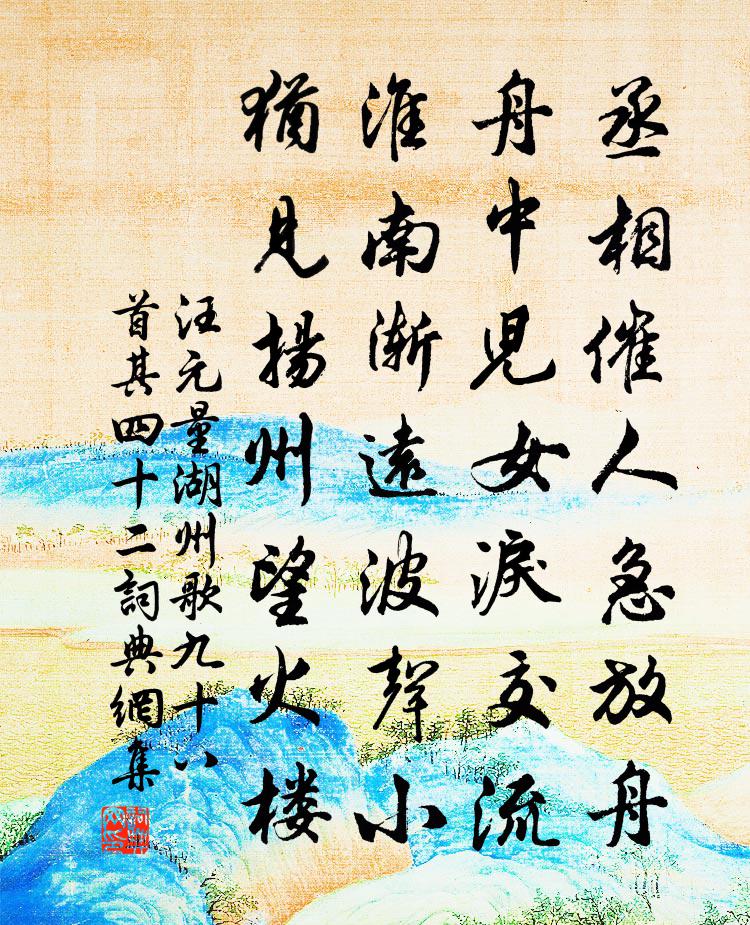 丞相催人急放舟
舟中児女淚交流
淮南渐遠波聲小
猶見揚州望火楼
汪元量湖州歌九十八
首其四十二詞典網集